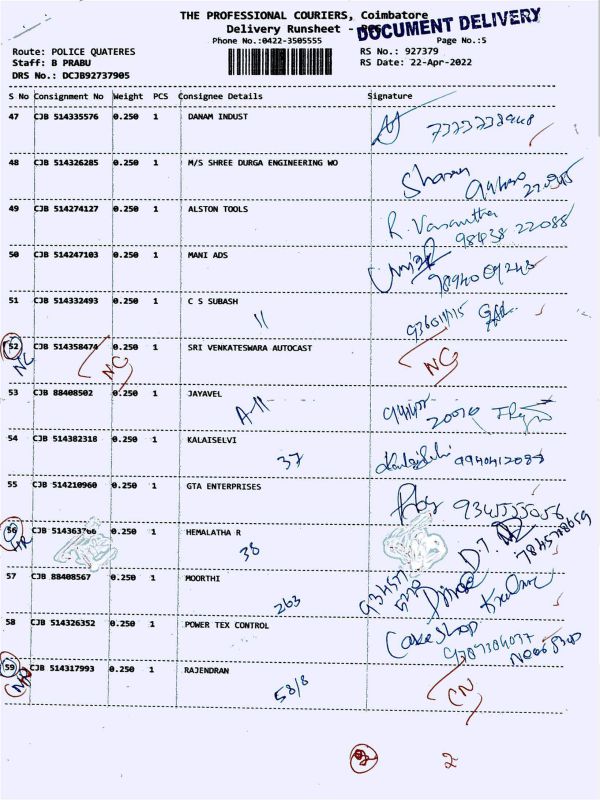 THE PROFESSIONAL COURIERS, Coimbatore
Delivery Runsheet -
DOCUMENT DELIVERY
Phone No.:0422-3505555
Page No.:5
Route: POLICE QUATERES
RS No.: 927379
Staff: B PRABU
RS Date: 22-Apr-2022
DRS No.: DCJB92737905
S No Consignment No Weight PCS Consignee Details Signature
47 CJB 514335576 0.250 1 DANAM INDUST
48 CJB 514326285 0.250 1 M/S SHREE DURGA ENGINEERING WO
49 CJB 514274127 0.250 1 ALSTON TOOLS R. Vasantha
98438 22088
50 CJB 514247103 0.250 1 MANI ADS
51 CJB 514332493 0.250 1 C S SUBASH
11
52 CJB 514358474 0.250 1 SRI VENKATESWARA AUTOCAST
NC NC NC
53 CJB 88408502 0.250 1 JAYAVEL
A-11
54 CJB 514382318 0.250 1 KALAISELVI
37 9940412087
55 CJB 514210960 0.250 1 GTA ENTERPRISES
9345555056
56 0.250 1 HEMALATHA R
38
57 CJB 88408567 0.250 1 MOORTHI
263
58 CJB 514326352 0.250 1 POWER TEX CONTROL
Cake Shop
59 CJB 514317993 0.250 1 RAJENDRAN
58/8 CN
2